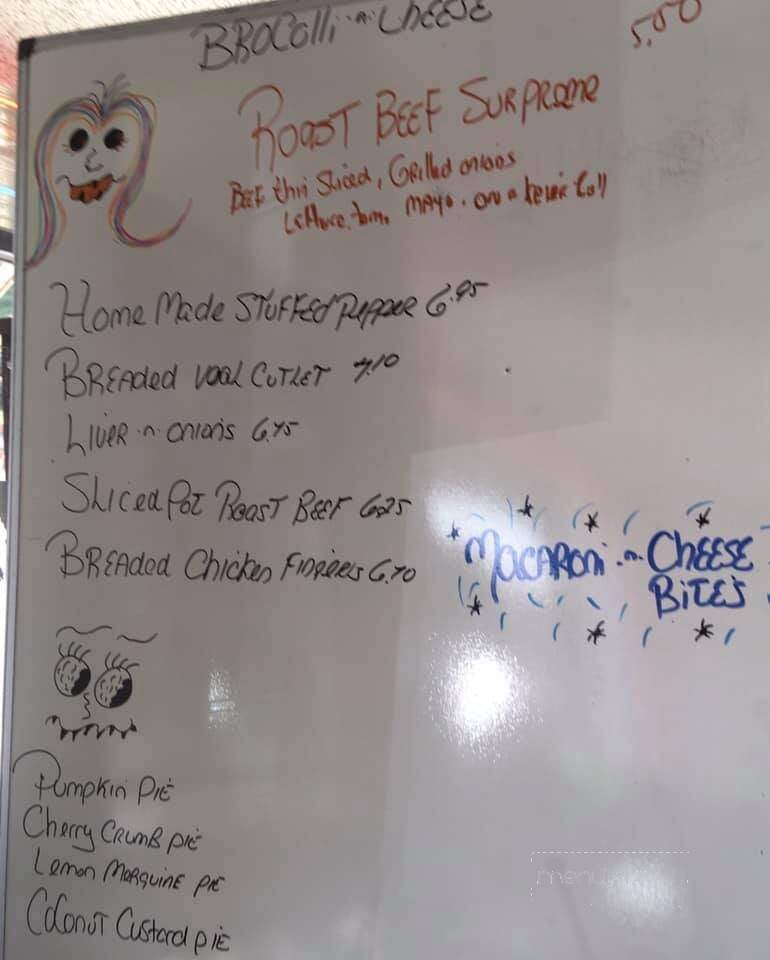 BROCOlli-n-CHEESE
5.50
ROAST BEEF SURPREME
BEEF thin Sliced, Grilled onions
Lettuce, tom, MAYO. on a Roll
Home Made STUFFED Pepper 6.95
BREADED VEAL CUTLET 7.10
LIVER-n-ONIONS 6.75
SLICED POT ROAST BEEF 6.25
BREADED CHICKEN FINGERS 6.70
MACARONi-n-CHEESE
BiTES
Pumpkin PiE
Cherry CRUMB PiE
Lemon MERQUINE PiE
COCONUT Custard PiE